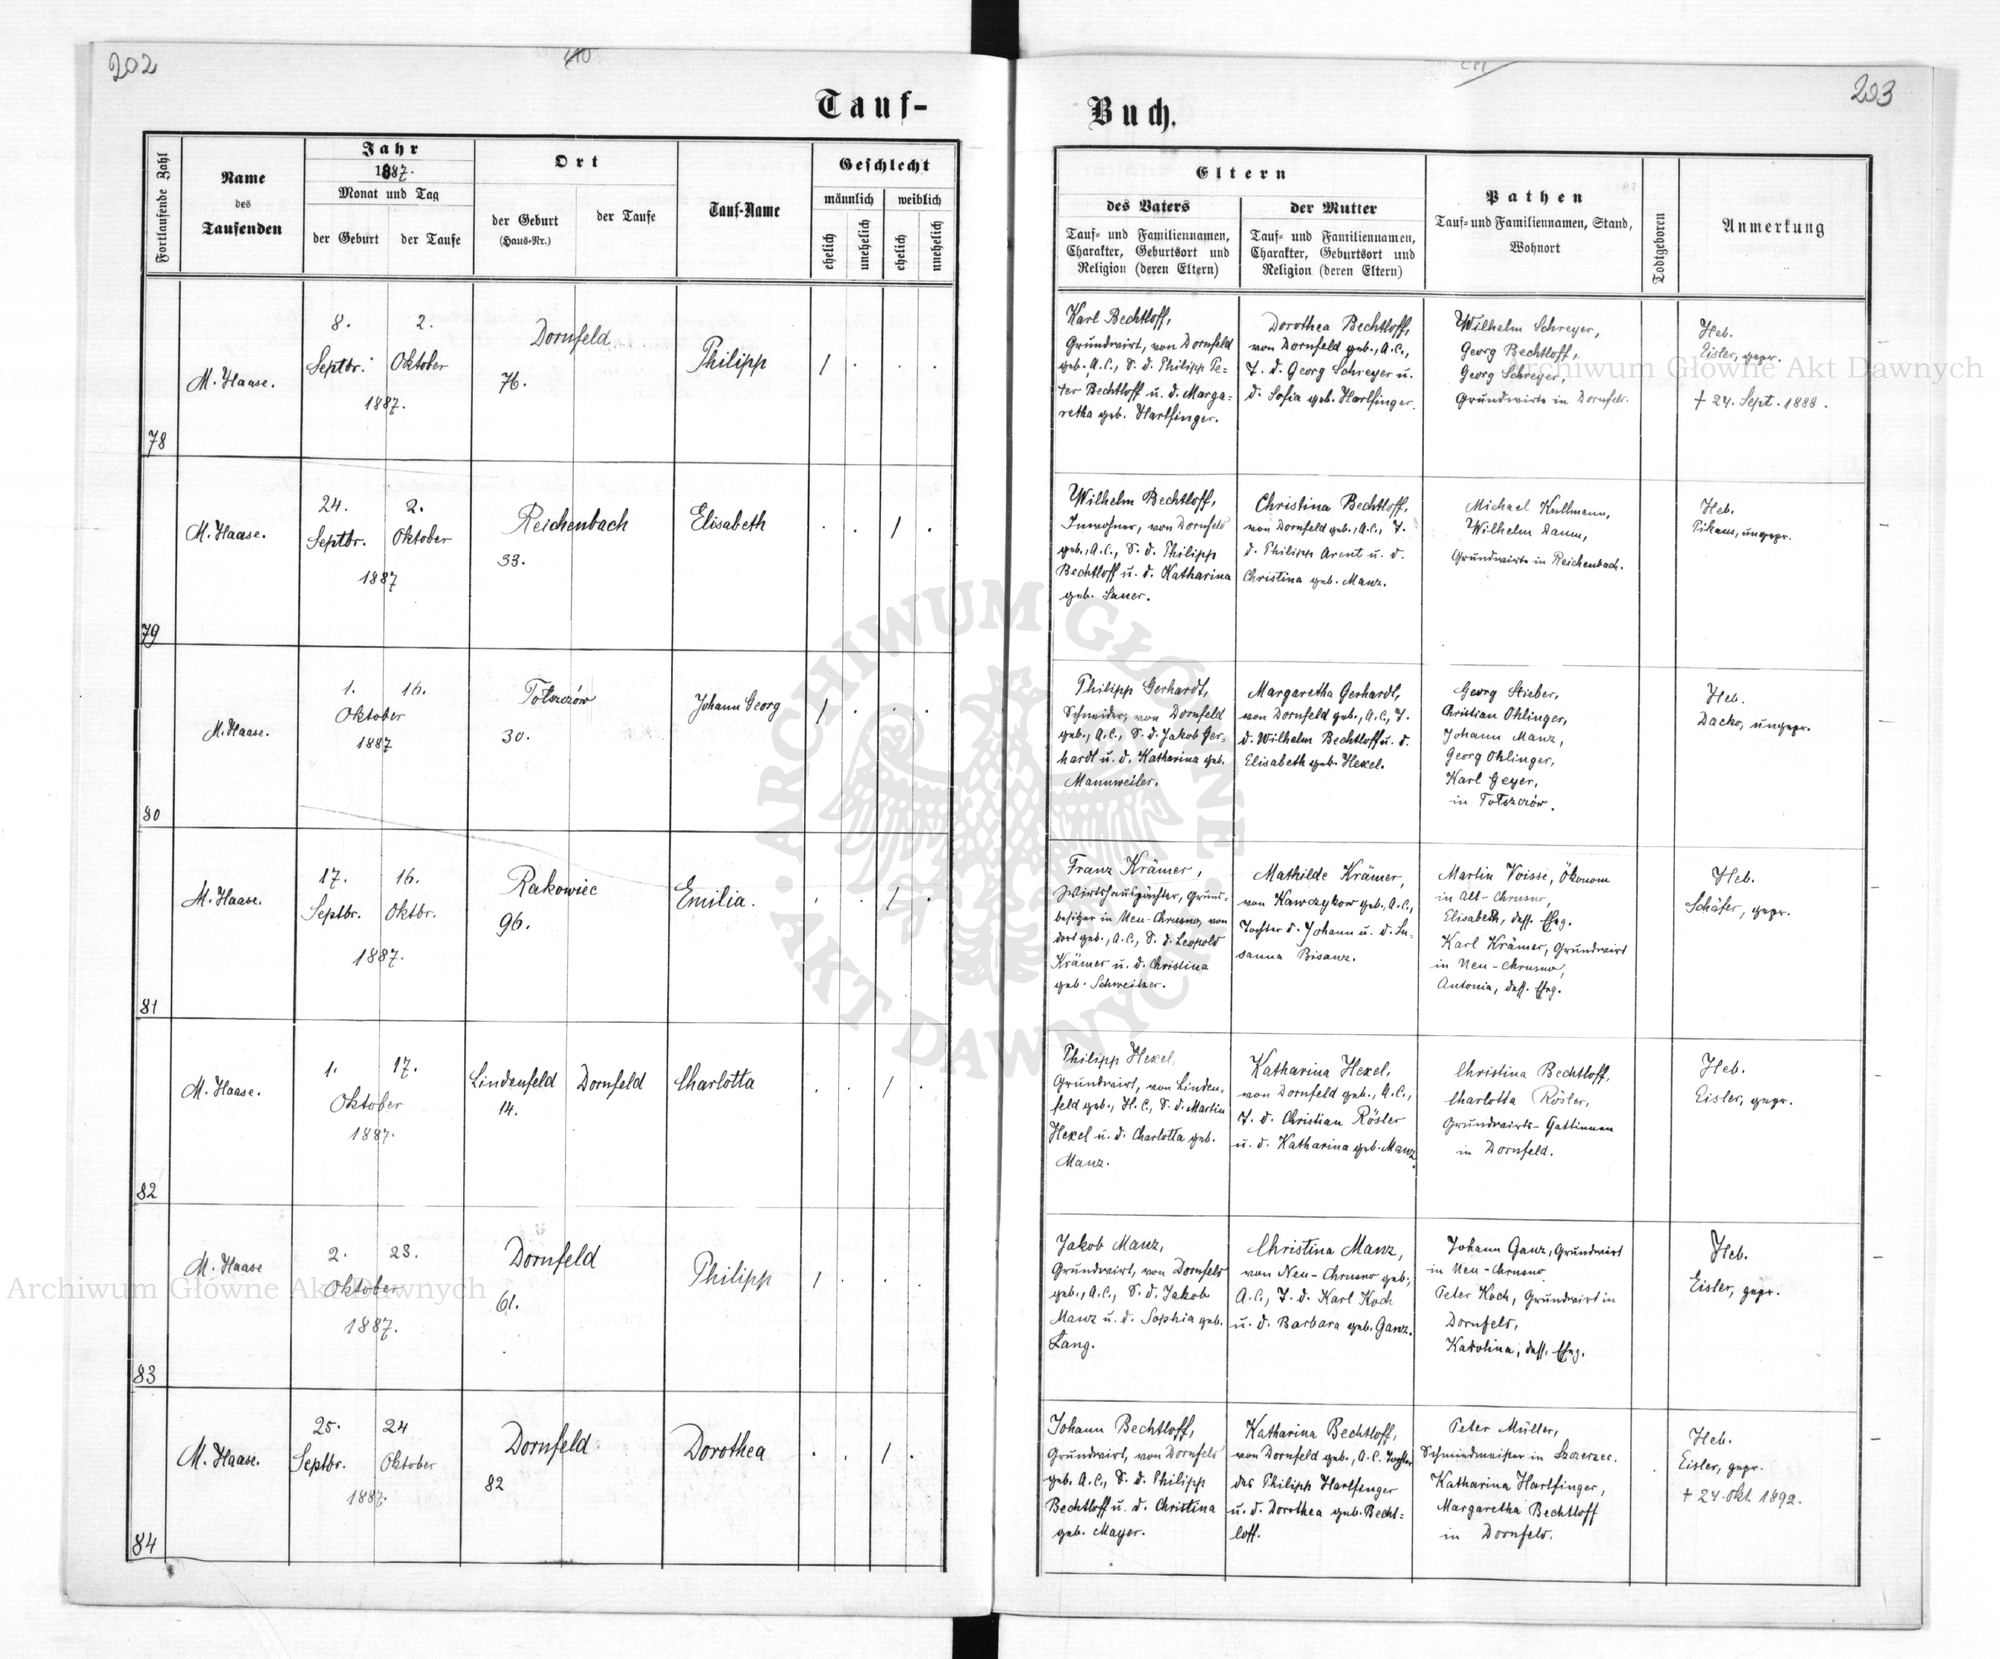 202
203
Tauf-
Buch.
Fortlaufende Zahl
Name
des
Taufenden
Jahr
1887.
Monat und Tag
der Geburt
der Taufe
Ort
der Geburt
(Haus-Nr.)
der Taufe
Tauf-Name
Geschlecht
männlich
weiblich
ehelich
unehelich
ehelich
unehelich
Eltern
des Vaters
Tauf- und Familiennamen,
Charakter, Geburtsort und
Religion (deren Eltern)
der Mutter
Tauf- und Familiennamen,
Charakter, Geburtsort und
Religion (deren Eltern)
Pathen
Tauf- und Familiennamen, Stand,
Wohnort
Todtgeboren
Anmerkung
78
M. Haase.
8.
Septbr.
2.
Oktober
1887.
Dornfeld
76.
Philipp
Karl Bechtloff,
Grundwirt, von Dornfeld
geb., A.C., S. d. Philipp Pe-
ter Bechtloff u. d. Marga-
retha geb. Hartfinger.
Dorothea Bechtloff,
von Dornfeld geb., A.C.,
T. d. Georg Schreyer u.
d. Sofia geb. Hartfinger.
Wilhelm Schreyer,
Georg Bechtloff,
Georg Schreyer,
Grundwirte in Dornfeld.
Heb.
Eisler, gepr.
† 24. Sept. 1888.
79
M. Haase.
24.
Septbr.
2.
Oktober
1887
Reichenbach
33.
Elisabeth
Wilhelm Bechtloff,
Inwohner, von Dornfeld
geb., A.C., S. d. Philipp
Bechtloff u. d. Katharina
geb. Sauer.
Christina Bechtloff,
von Dornfeld geb., A.C., T.
d. Philipp Arent u. d.
Christina geb. Manz.
Michael Kullmann,
Wilhelm Damm,
Grundwirte in Reichenbach.
Heb.
Pikaus, ungepr.
80
M. Haase.
1.
16.
Oktober
1887
Tołszczów
30.
Johann Georg
Philipp Gerhardt,
Schneider, von Dornfeld
geb., A.C., S. d. Jakob Ger-
hardt u. d. Katharina geb.
Mannweiler.
Margaretha Gerhardt,
von Dornfeld geb., A.C., T.
d. Wilhelm Bechtloff u. d.
Elisabeth geb. Hexel.
Georg Stieber,
Christian Ohlinger,
Johann Manz,
Georg Ohlinger,
Karl Geyer,
in Tołszczów.
Heb.
Dacko, ungepr.
81
M. Haase.
17.
Septbr.
16.
Oktbr.
1887.
Rakowiec
96.
Emilia.
Franz Krämer,
Wirtshauspächter, Grund-
besitzer in Neu-Chrusno, von
dort geb., A.C., S. d. Leopold
Krämer u. d. Christina
geb. Schweitzer.
Mathilde Krämer,
von Kawczykow geb., A.C.,
Tochter d. Johann u. d. Su-
sanna Bisanz.
Martin Voisse, Ökonom
in Alt-Chrusno,
Elisabeth, dess. Eheg.
Karl Krämer, Grundwirt
in Neu-Chrusno,
Antonia, dess. Eheg.
Heb.
Schäfer, gepr.
82
M. Haase.
1.
17.
Oktober
1887.
Lindenfeld
14.
Dornfeld
Charlotta
Philipp Hexel,
Grundwirt, von Linden-
feld geb., H.C., S. d. Martin
Hexel u. d. Charlotta geb.
Manz.
Katharina Hexel,
von Dornfeld geb., A.C.,
T. d. Christian Rösler
u. d. Katharina geb. Manz.
Christina Bechtloff,
Charlotta Rösler,
Grundwirts-Gattinnen
in Dornfeld.
Heb.
Eisler, gepr.
83
M. Haase
2.
23.
Oktober
1887.
Dornfeld
61.
Philipp
Jakob Manz,
Grundwirt, von Dornfeld
geb., A.C., S. d. Jakob
Manz u. d. Sophia geb.
Lang.
Christina Manz,
von Neu-Chrusno geb.,
A.C., T. d. Karl Koch
u. d. Barbara geb. Ganz.
Johann Ganz, Grundwirt
in Neu-Chrusno
Peter Koch, Grundwirt in
Dornfeld,
Karolina, dess. Eheg.
Heb.
Eisler, gepr.
84
M. Haase.
25.
Septbr.
24
Oktober
1887.
Dornfeld
82
Dorothea
Johann Bechtloff,
Grundwirt, von Dornfeld
geb. A.C., S. d. Philipp
Bechtloff u. d. Christina
geb. Mayer.
Katharina Bechtloff,
von Dornfeld geb., A.C. Tochter
des Philipp Hartfinger
u. d. Dorothea geb. Becht-
loff.
Peter Müller,
Schmiedmeister in Szczerzec.
Katharina Hartfinger,
Margaretha Bechtloff
in Dornfeld.
Heb.
Eisler, gepr.
† 24. Okt. 1892.
Archiwum Główne Akt Dawnych
Archiwum Główne Akt Dawnych
ARCHIWUM GŁÓWNE AKT DAWNYCH